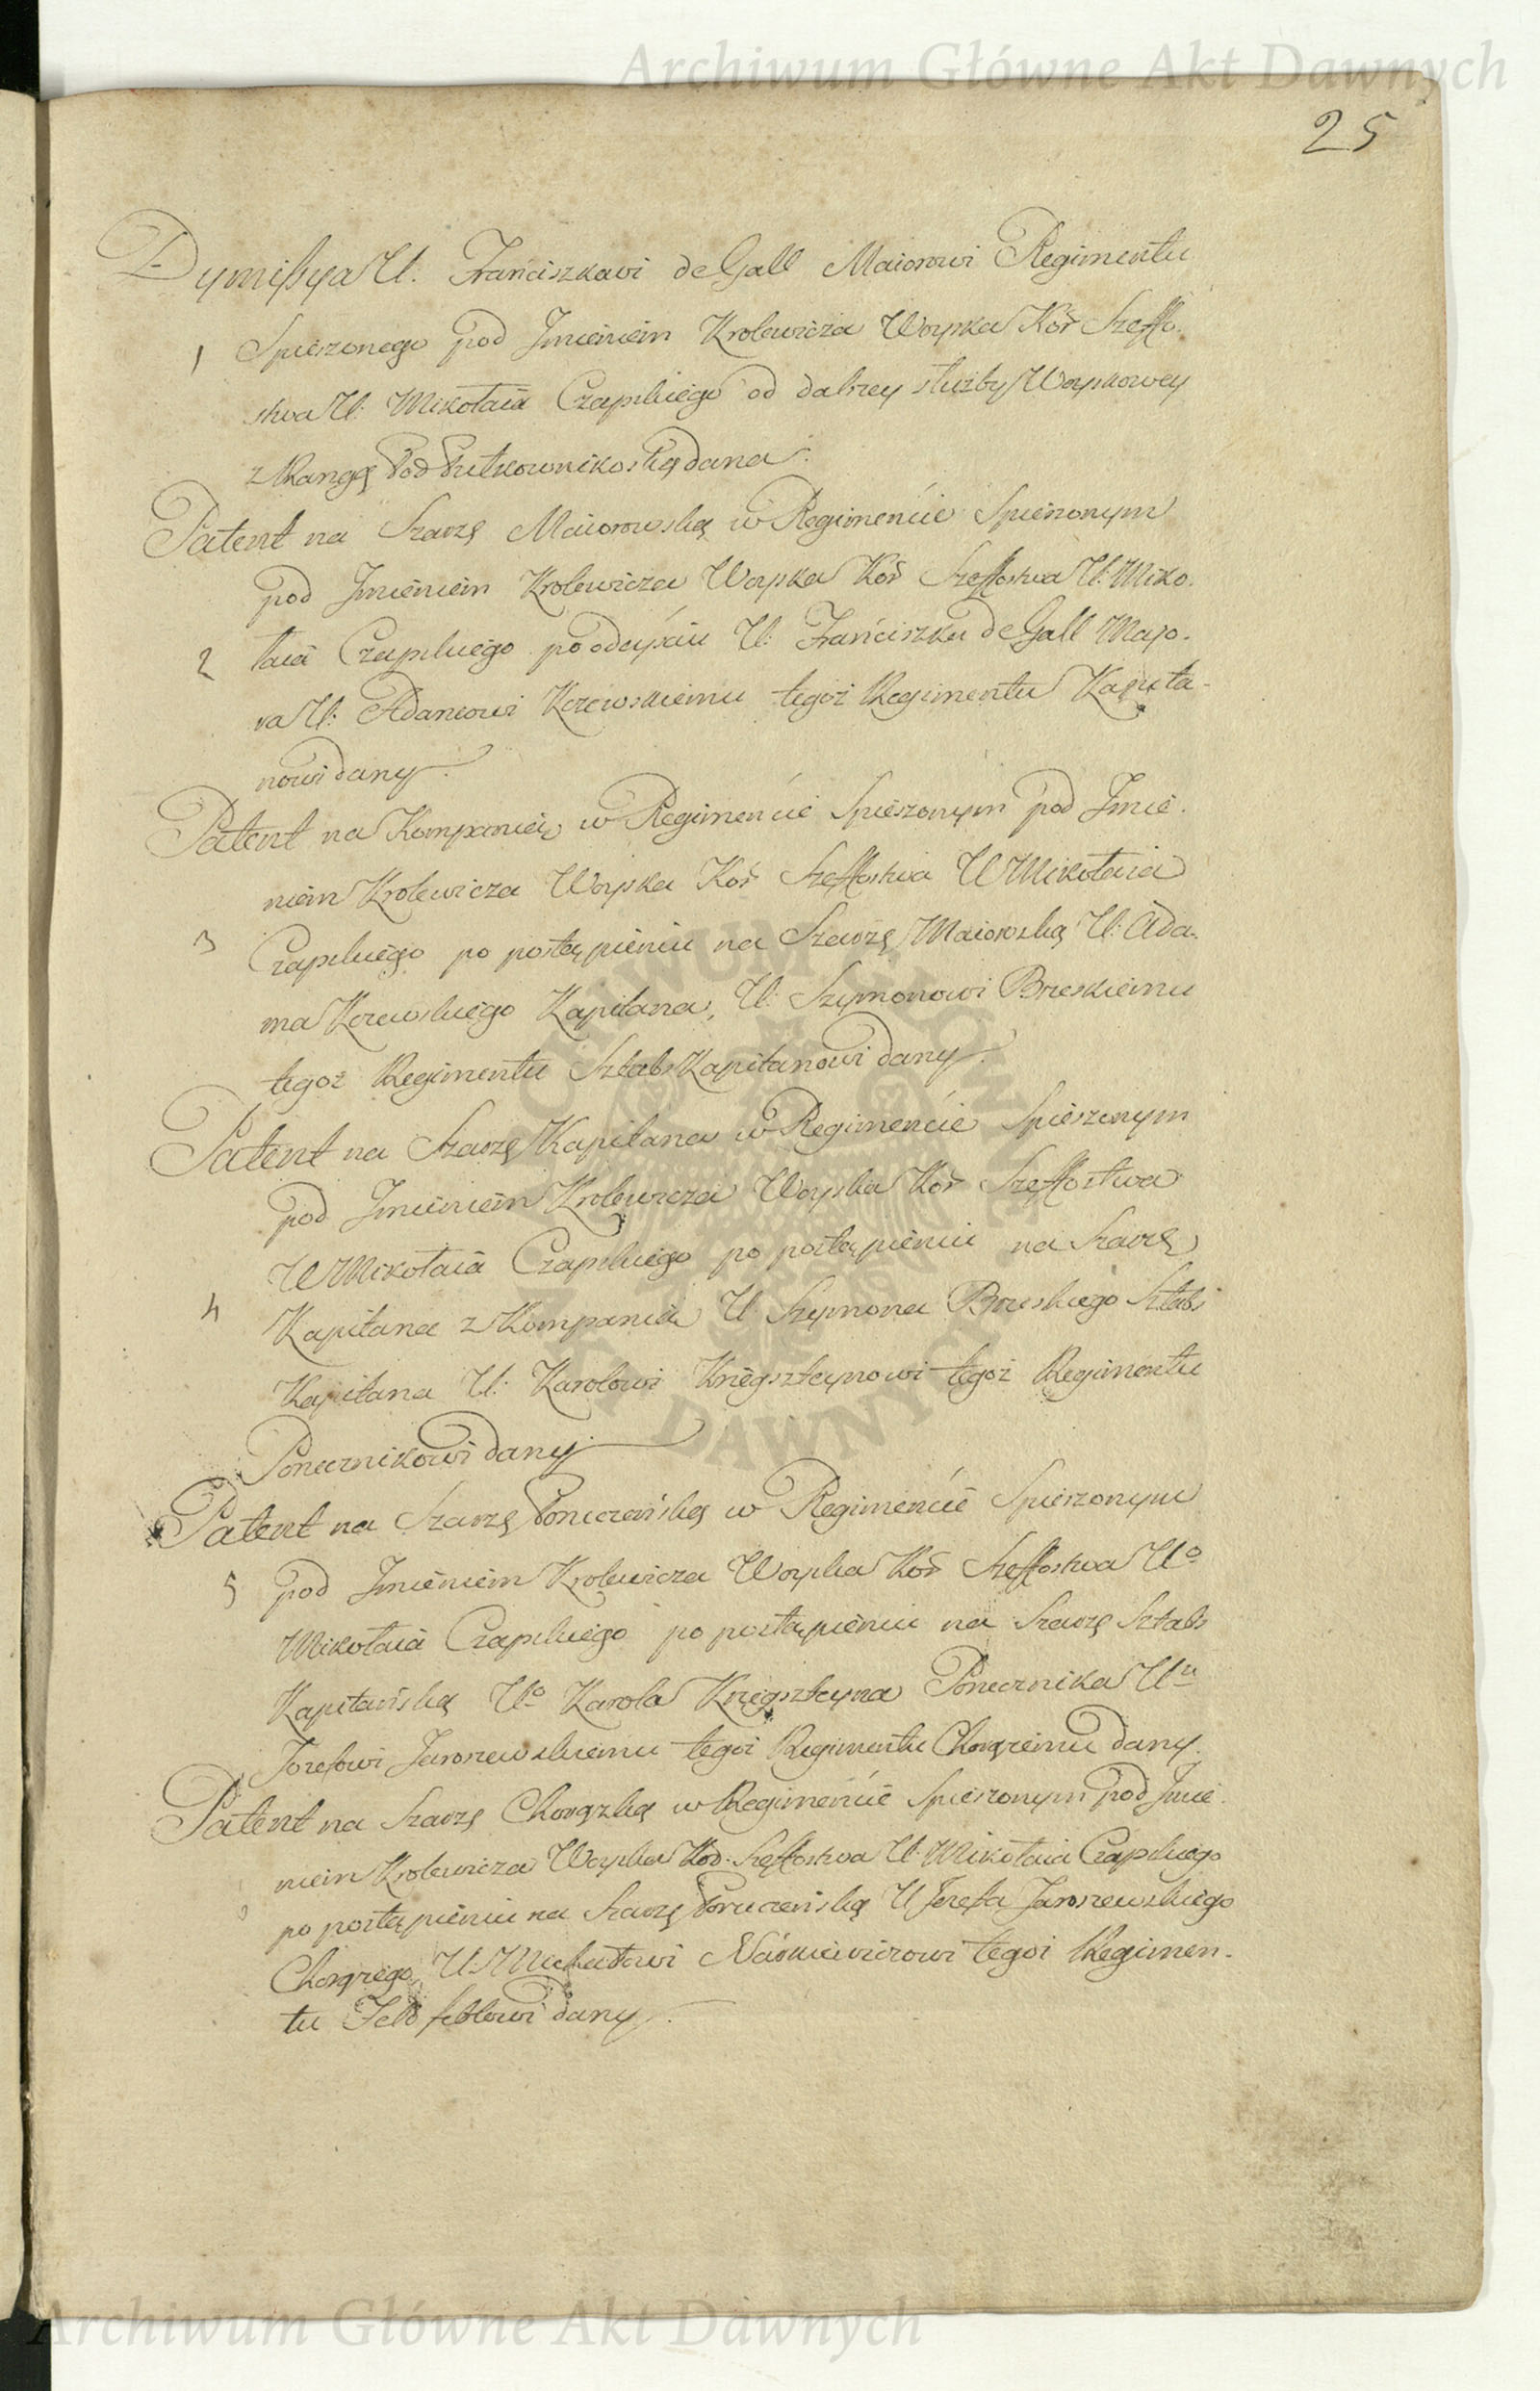 Archiwum Główne Akt Dawnych
25
Dymissya U. Franciszkowi de Gall Maiorowi Regimentu
1 Spieszonego pod Jmieniem Krolewicza Woyska Kor Szeffo-
stwa U: Mikołaia Czapskiego od dalszey służby Woyskowey
z Rangą Pod Pułkownikoską dana.
Patent na Szarzę Maiorowską w Regimencie Spieszonym
pod Jmieniem Krolewicza Woyska Kor Szeffostwa U: Miko-
2 łaia Czapskiego po odeyściu U: Franciszka de Gall Majo-
ra U: Adamowi Kczewskiemu tegoż Regimentu Kapita-
nowi dany.
Patent na Kompanią w Regimencie Spieszonym pod Jmie-
niem Krolewicza Woyska Kor Szeffostwa W Mikołaia
3 Czapskiego po postąpieniu na Szarzę Maiorską U: Ada-
ma Kczewskiego Kapitana, U: Szymonowi Brzeskiemu
tegoż Regimentu Sztabs Kapitanowi dany.
Patent na Szarzę Kapitana w Regimencie Spieszonym
pod Jmieniem Krolewicza Woyska Kor Szeffostwa
W Mikołaia Czapskiego po postąpieniu na Szarzę
4 Kapitana z Kompanią U Szymona Brzeskiego Sztabs
Kapitana U: Karolowi Kriegszteynowi tegoż Regimentu
Porucznikowi dany.
Patent na Szarzę Poruczeńską w Regimencie Spieszonym
5 pod Jmieniem Krolewicza Woyska Kor Szeffostwa Uo
Mikołaia Czapskiego po postąpieniu na Szarzę Sztabs
Kapitańską Uo Karola Kriegszteyna Porucznika Uu
Jozefowi Jaroszewskiemu tegoż Regimentu Chorążemu dany.
Patent na Szarzę Chorążską w Regimencie Spieszonym pod Jmie-
niem Krolewicza Woyska Kor. Szeffostwa U. Mikołaia Czapskiego
po postąpieniu na Szarzę Poruczeńską U Jozefa Jaroszewskiego
Chorążego, U: Michałowi tegoż Regimen-
tu Feldfeblowi dany.
ARCHIWUM GŁÓWNE AKT DAWNYCH
Archiwum Główne Akt Dawnych